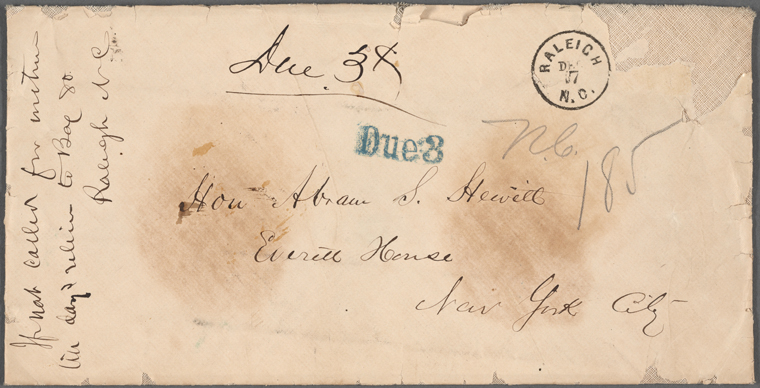 If not called for within
ten days return to Box 80
Raleigh N.C.
Due 3¢
RALEIGH
DEC
17
N.C.
Due 3
N.C.
185
Hon Abram S. Hewitt
Everett House
New York City